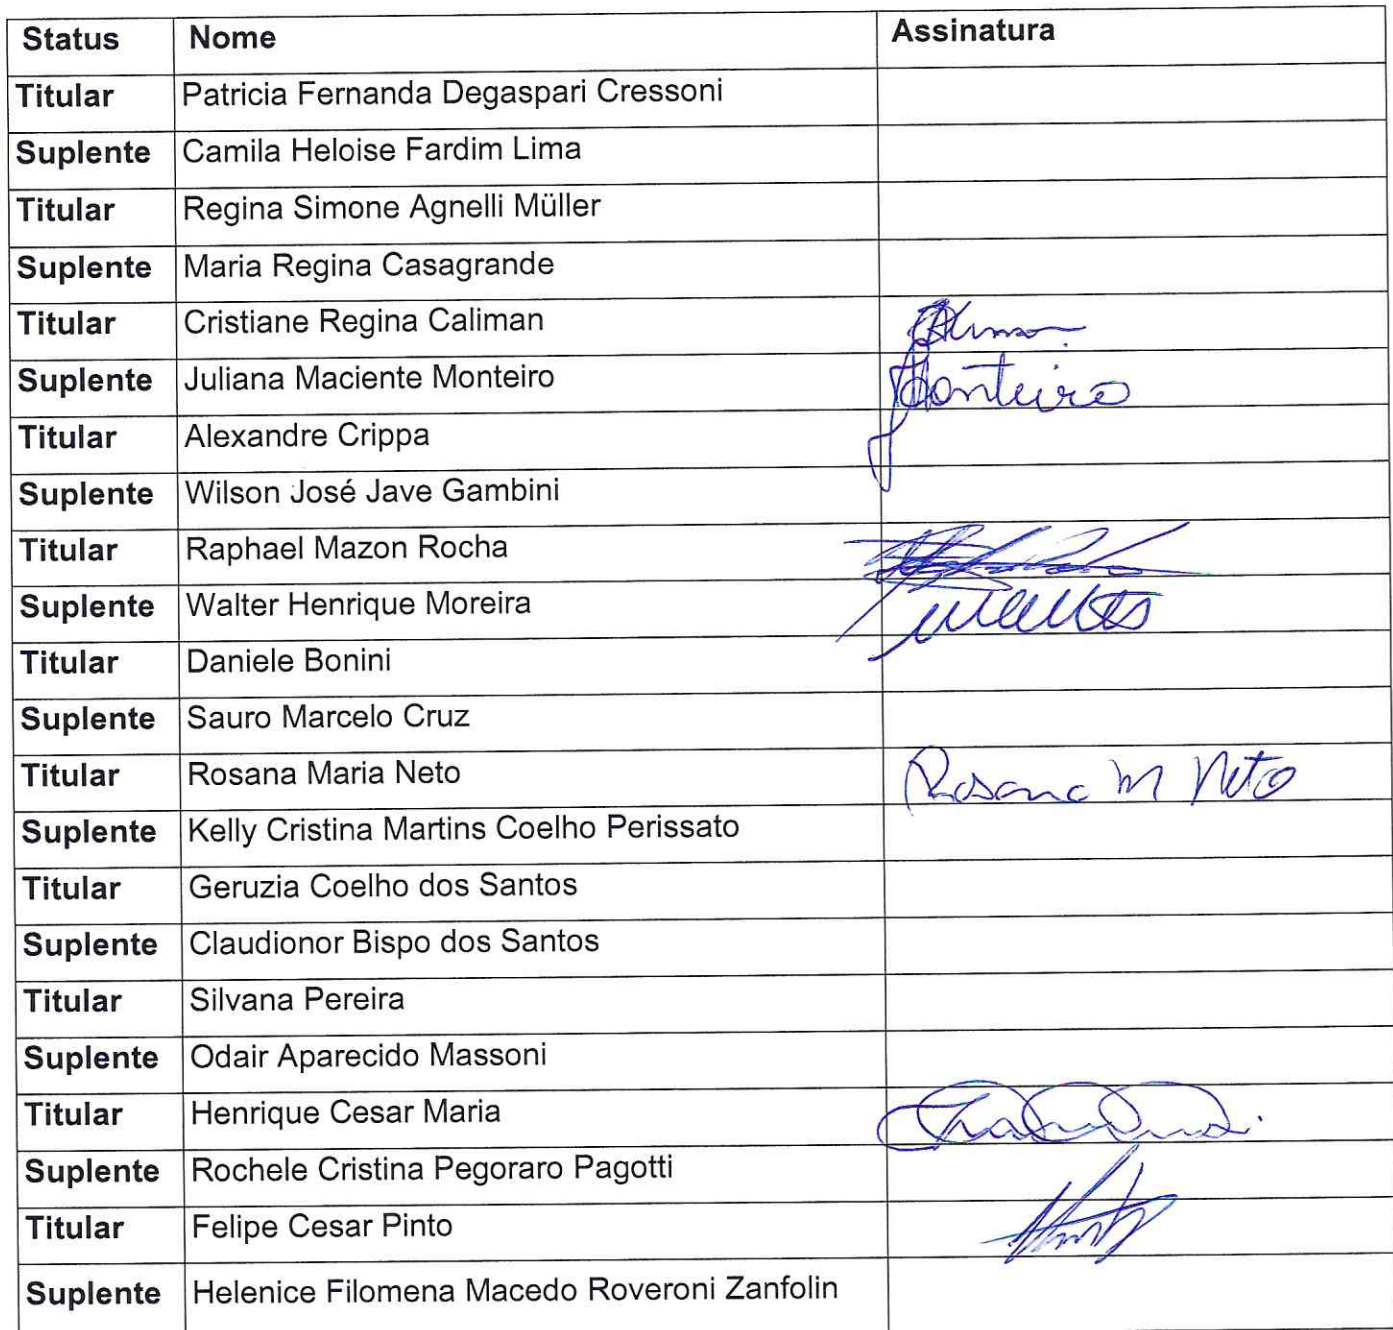 Status Nome Assinatura
Titular Patricia Fernanda Degaspari Cressoni
Suplente Camila Heloise Fardim Lima
Titular Regina Simone Agnelli Müller
Suplente Maria Regina Casagrande
Titular Cristiane Regina Caliman
Suplente Juliana Maciente Monteiro Monteiro
Titular Alexandre Crippa
Suplente Wilson José Jave Gambini
Titular Raphael Mazon Rocha
Suplente Walter Henrique Moreira
Titular Daniele Bonini
Suplente Sauro Marcelo Cruz
Titular Rosana Maria Neto Rosana M Neto
Suplente Kelly Cristina Martins Coelho Perissato
Titular Geruzia Coelho dos Santos
Suplente Claudionor Bispo dos Santos
Titular Silvana Pereira
Suplente Odair Aparecido Massoni
Titular Henrique Cesar Maria
Suplente Rochele Cristina Pegoraro Pagotti
Titular Felipe Cesar Pinto
Suplente Helenice Filomena Macedo Roveroni Zanfolin